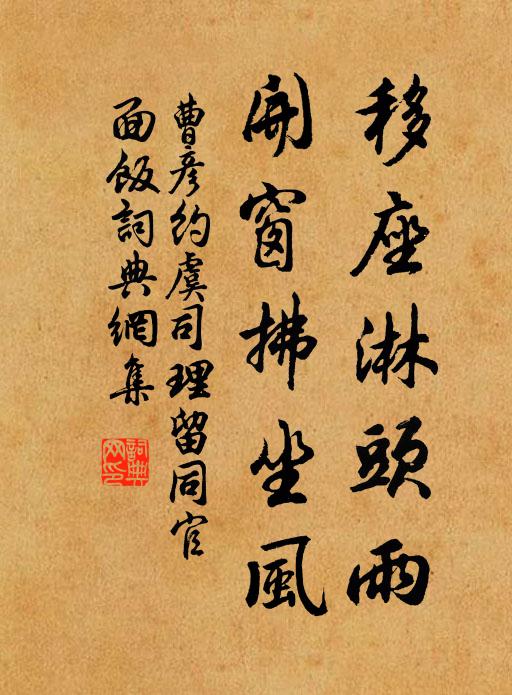 移座淋頭雨
開窗拂坐風
曹彥約虞司理留同官
面飯詞典網集
詞典网印